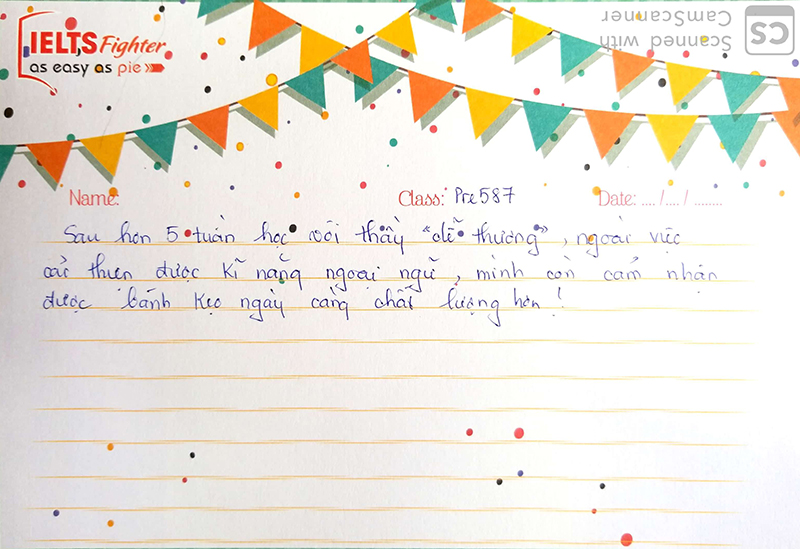 IELTS Fighter
as easy as pie
Scanned with
CamScanner
CS
Name:
Class: Pre587
Date: .... /.... / ........
Sau hơn 5 tuần học với thầy "dễ thương", ngoài việc
cải thiện được kĩ năng ngoại ngữ, mình còn cảm nhận
được bánh kẹo ngày càng chất lượng hơn!